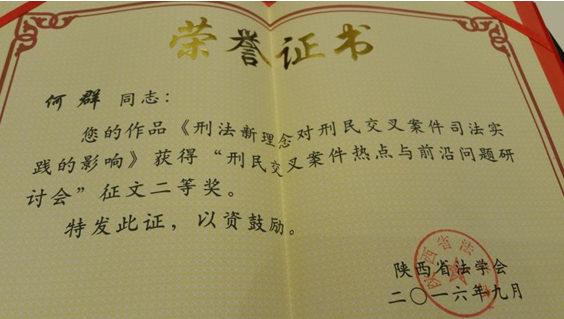 荣誉证书
何群 同志：
您的作品《刑法新理念对刑民交叉案件司法实
践的影响》获得“刑民交叉案件热点与前沿问题研
讨会”征文二等奖。
特发此证，以资鼓励。
陕西省法学会
二〇一六年九月
陕西省法